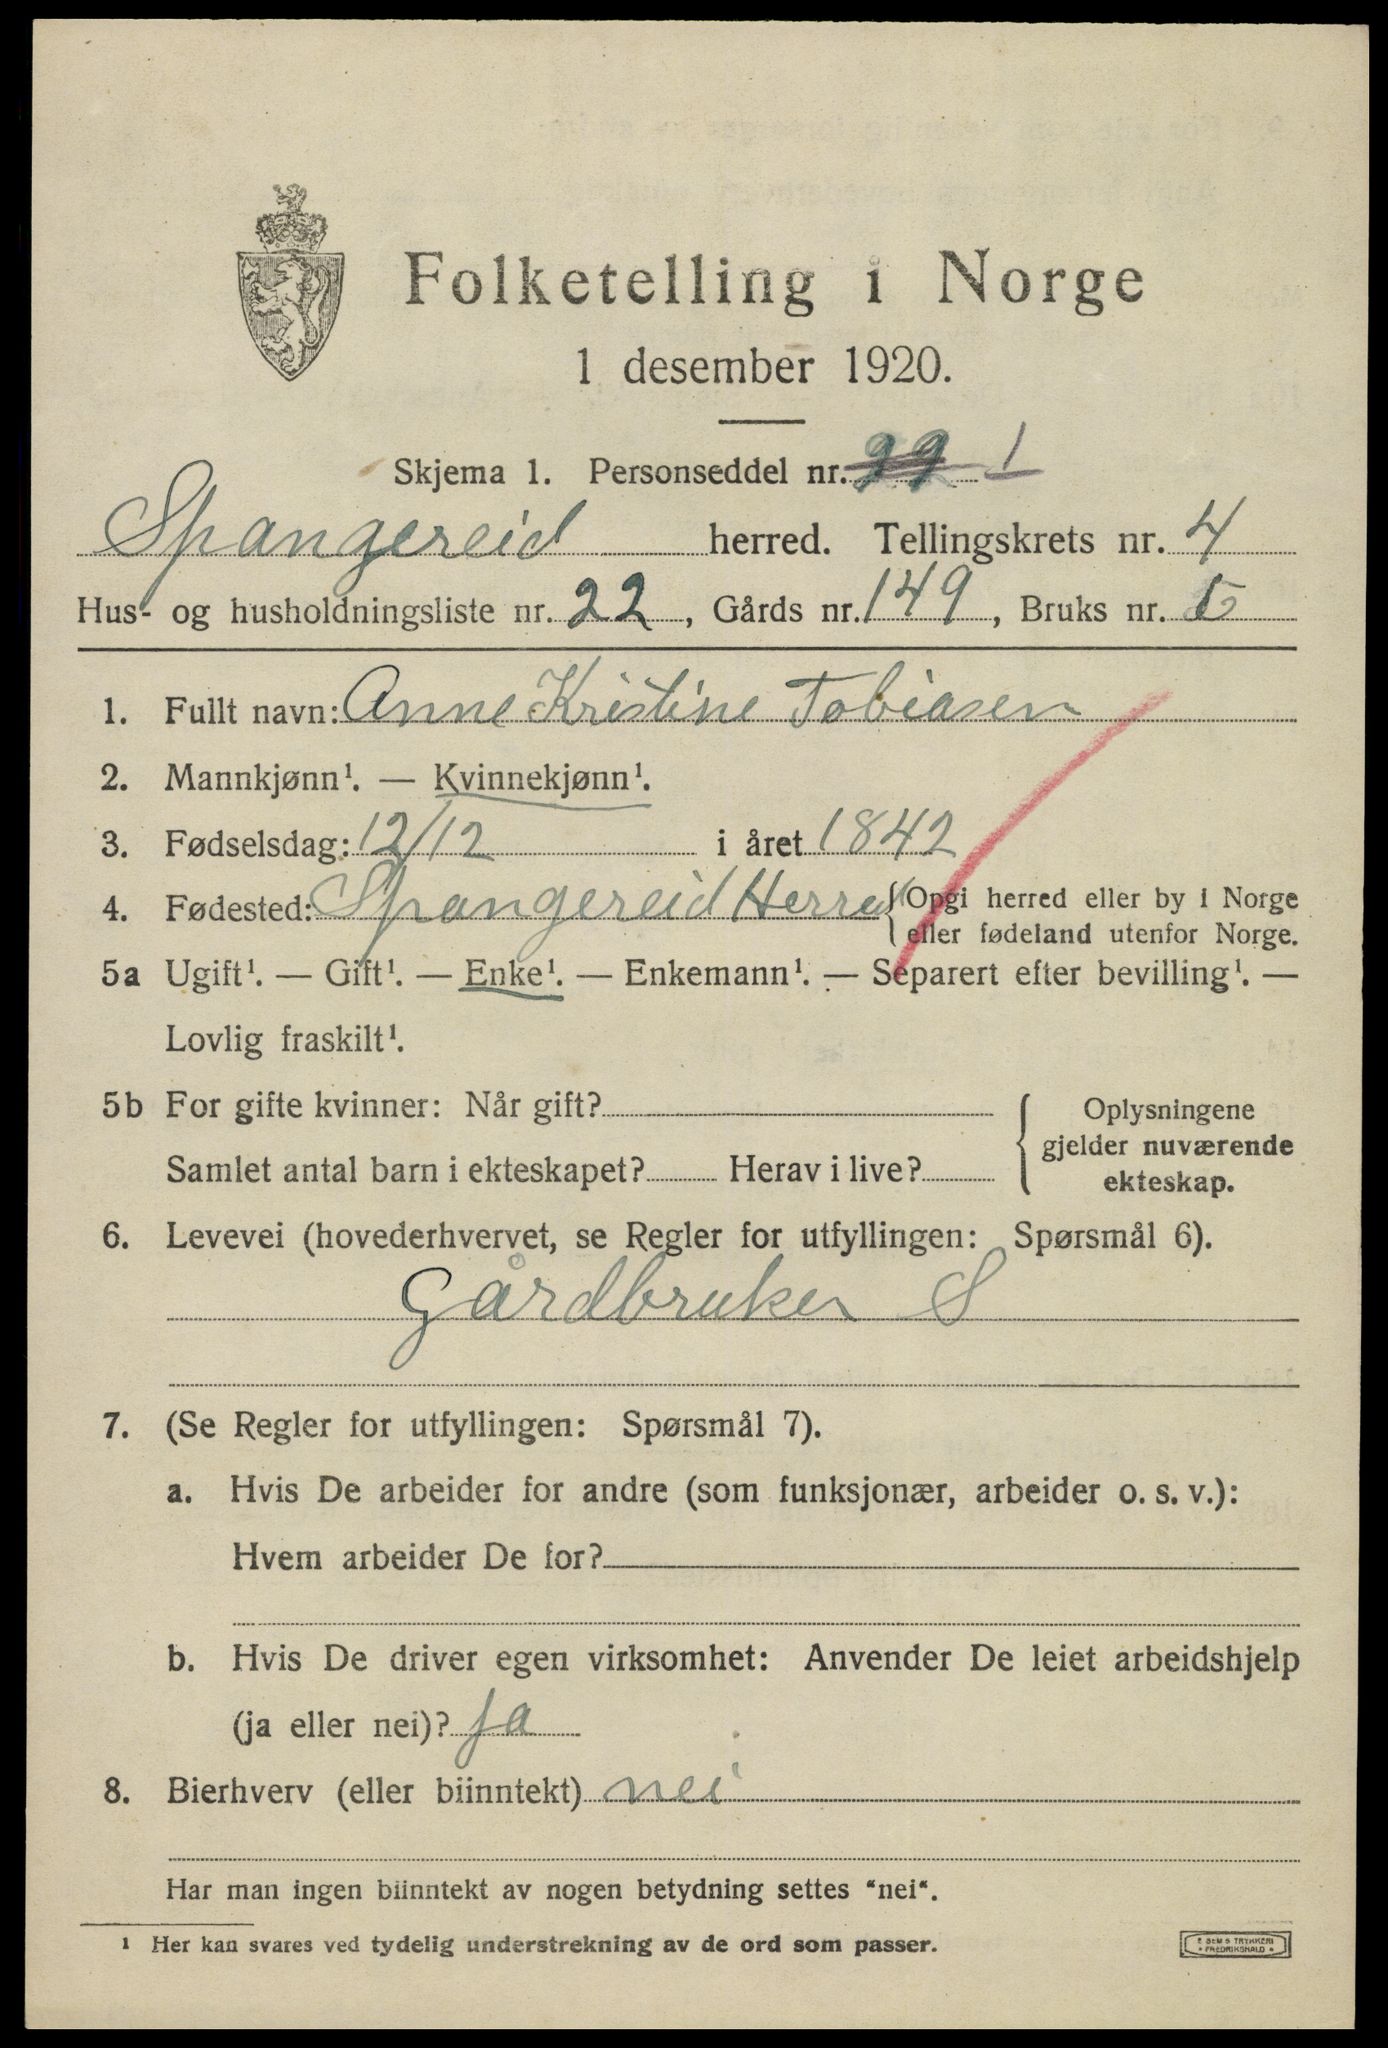 Folketelling i Norge
1 desember 1920.
Skjema 1. Personseddel nr. 99 1
Spangereid herred. Tellingskrets nr. 4
Hus- og husholdningsliste nr. 22, Gårds nr. 149, Bruks nr.
1. Fullt navn: Anne Kristine Tobiasen
2. Mannkjønn¹. — Kvinnekjønn¹.
3. Fødselsdag: 12/12 i året 1842
4. Fødested: Spangereid Herred {Opgi herred eller by i Norge
eller fødeland utenfor Norge.
5a Ugift¹. — Gift¹. — Enke¹. — Enkemann¹. — Separert efter bevilling¹. —
Lovlig fraskilt¹.
5b For gifte kvinner: Når gift?
Samlet antal barn i ekteskapet? Herav i live?
{ Oplysningene
gjelder nuværende
ekteskap.
6. Levevei (hovederhvervet, se Regler for utfyllingen: Spørsmål 6).
Gårdbruker S
7. (Se Regler for utfyllingen: Spørsmål 7).
a. Hvis De arbeider for andre (som funksjonær, arbeider o. s. v.):
Hvem arbeider De for?
b. Hvis De driver egen virksomhet: Anvender De leiet arbeidshjelp
(ja eller nei)? ja
8. Bierhverv (eller biinntekt) nei
Har man ingen biinntekt av nogen betydning settes “nei“.
¹ Her kan svares ved tydelig understrekning av de ord som passer.
E SEM S TRYKKERI
• FREDRIKSHALD •